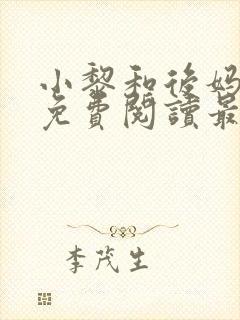 小黎和後媽
免費閱讀最
李茂生